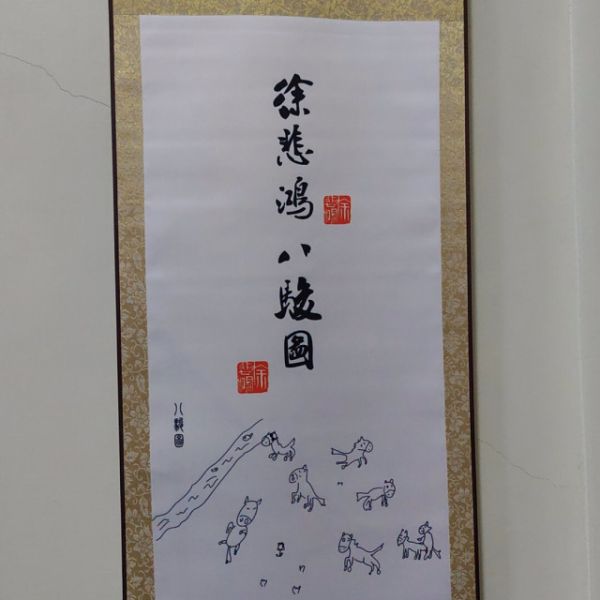 徐悲鴻八駿圖
八駿圖